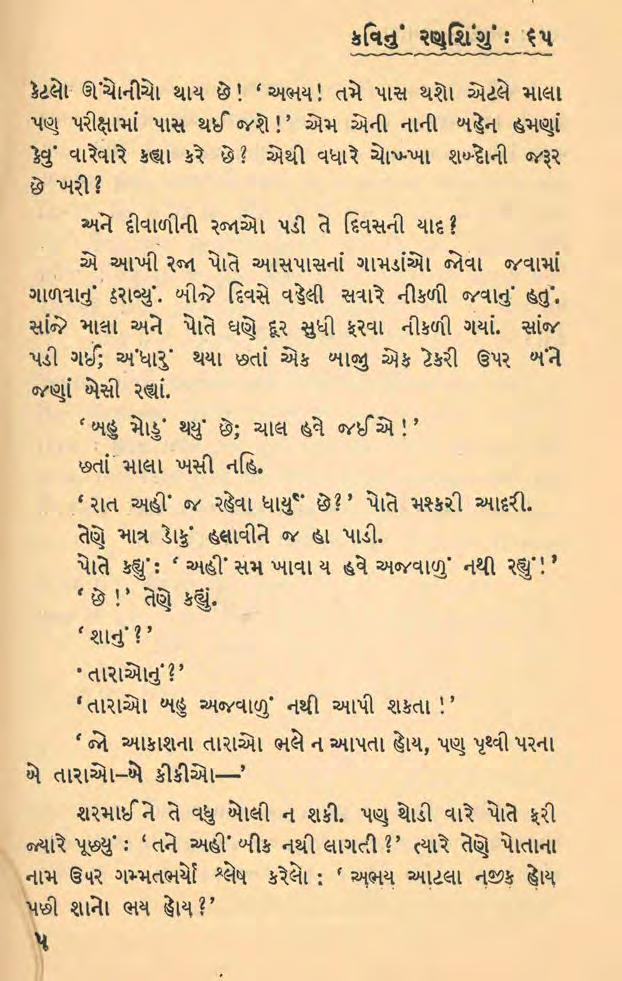 કવિનું રણશિંગું : ૬૫
કેટલો ઊંચોનીચો થાય છે! ‘અભય! તમે પાસ થશો એટલે માલા
પણ પરીક્ષામાં પાસ થઈ જશે!’ એમ એની નાની બહેન હમણાં
કેવું વારેવારે કહ્યા કરે છે? એથી વધારે ચોખ્ખા શબ્દોની જરૂર
છે ખરી?
અને દીવાળીની રજાઓ પડી તે દિવસની યાદ?
એ આખી રજા પોતે આસપાસનાં ગામડાંઓ જોવા જવામાં
ગાળવાનું ઠરાવ્યું. બીજે દિવસે વહેલી સવારે નીકળી જવાનું હતું.
સાંજે માલા અને પોતે ઘણે દૂર સુધી ફરવા નીકળી ગયાં. સાંજ
પડી ગઈ; અંધારું થયા છતાં એક બાજુ એક ટેકરી ઉપર બંને
જણાં બેસી રહ્યાં.
‘બહુ મોડું થયું છે; ચાલ હવે જઈએ!’
છતાં માલા ખસી નહિ.
‘રાત અહીં જ રહેવા ધાર્યું છે?’ પોતે મશ્કરી આદરી.
તેણે માત્ર ડોકું હલાવીને જ હા પાડી.
પોતે કહ્યું : ‘અહીં સમ ખાવા ય હવે અજવાળું નથી રહ્યું!’
‘છે!’ તેણે કહ્યું.
‘શાનું?’
‘તારાઓનું?’
‘તારાઓ બહુ અજવાળું નથી આપી શકતા!’
‘જો આકાશના તારાઓ ભલે ન આપતા હોય, પણ પૃથ્વી પરના
બે તારાઓ–બે કીકીઓ—’
શરમાઈને તે વધુ બોલી ન શકી. પણ થોડી વારે પોતે ફરી
જ્યારે પૂછ્યું : ‘તને અહીં બીક નથી લાગતી?’ ત્યારે તેણે પોતાના
નામ ઉપર ગમ્મતભર્યો શ્લેષ કરેલો : ‘અભય આટલા નજીક હોય
પછી શાનો ભય હોય?’
૫